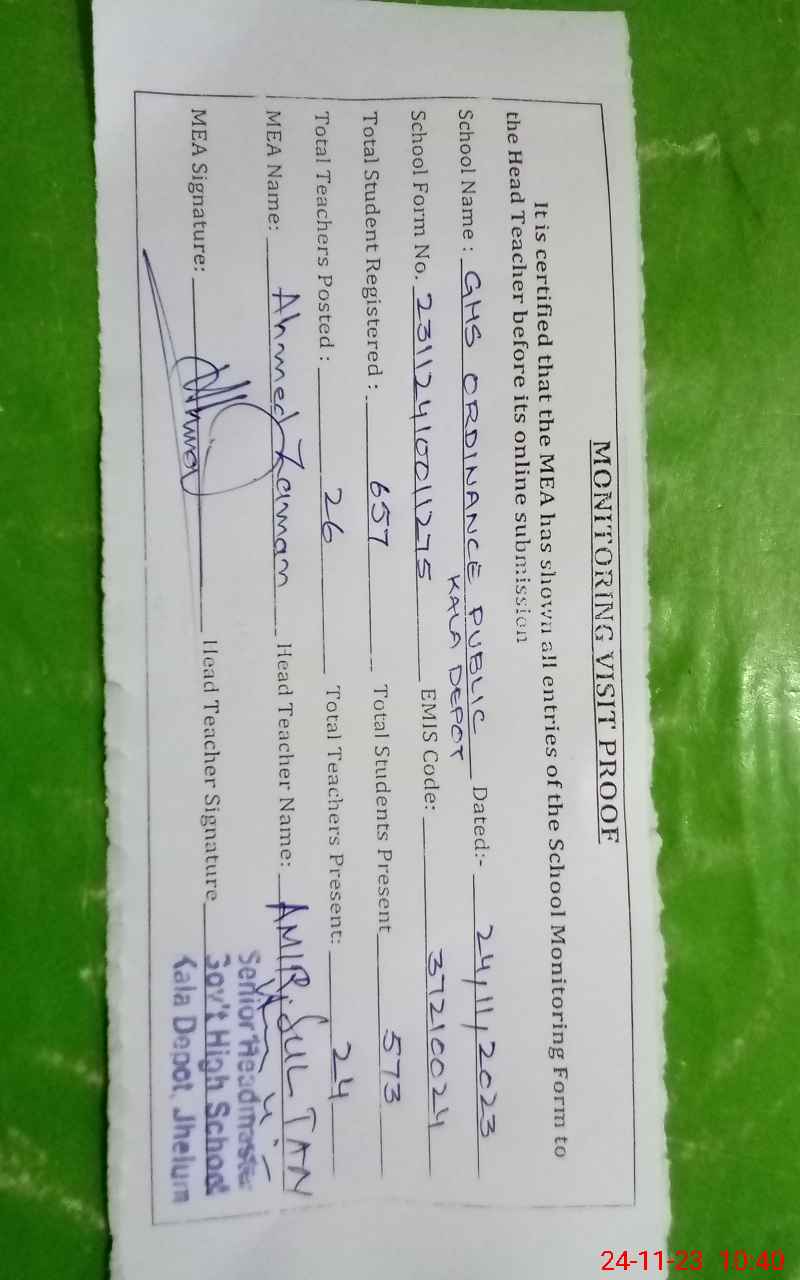 MONITORING VISIT PROOF
It is certified that the MEA has shown all entries of the School Monitoring Form to
the Head Teacher before its online submission
School Name : GHS ORDINANCE PUBLIC Dated:- 24,11,2023
KALA DEPOT
School Form No. 23112410011275 EMIS Code: 37210024
Total Student Registered : 657 Total Students Present 573
Total Teachers Posted : 26 Total Teachers Present: 24
MEA Name: Ahmed Zaman Head Teacher Name: AMIR SULTAN
MEA Signature: Head Teacher Signature
Senior Headmaster
Gov't High School
Kala Depot, Jhelum
24-11-23 10:40